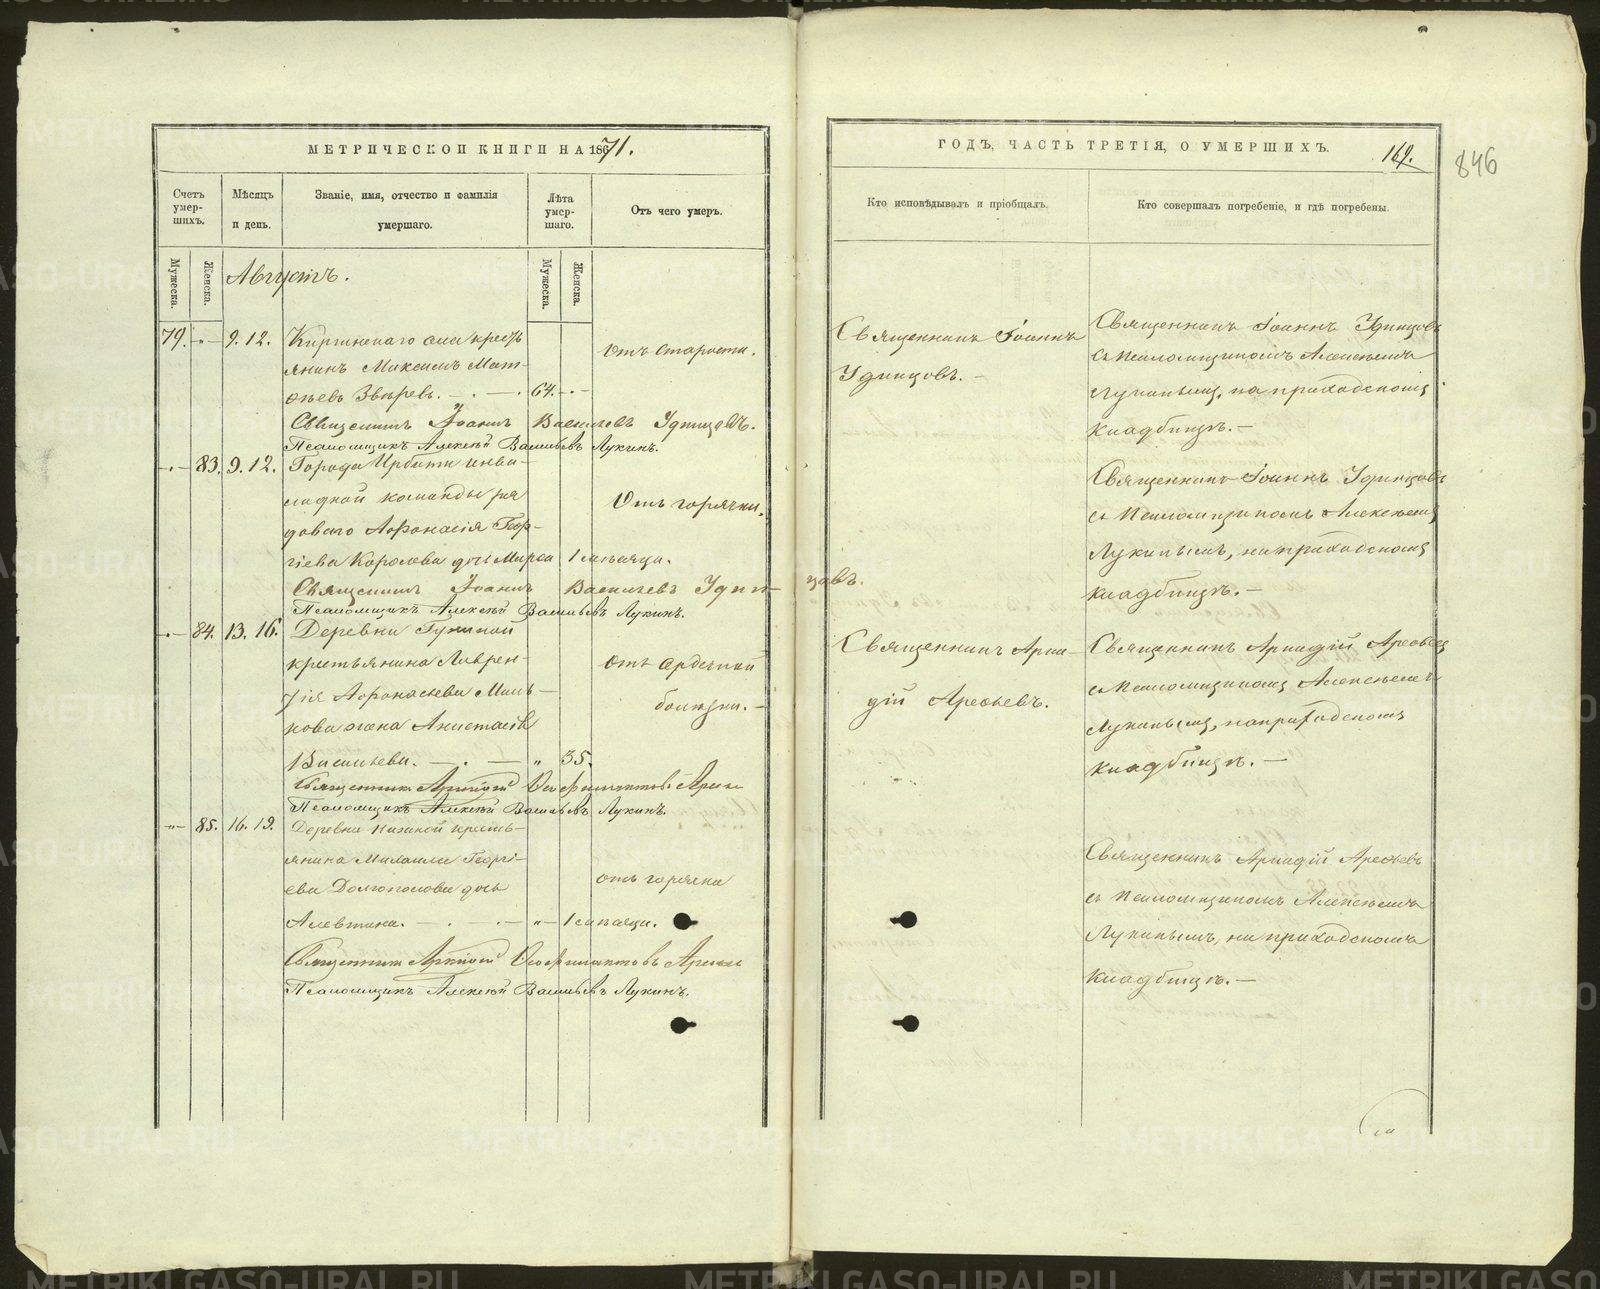 МЕТРИЧЕСКОЙ КНИГИ НА 1871.
Счетъ умер-шихъ.
Мѣсяцъ и день.
Званіе, имя, отчество и фамилія умершаго.
Лѣта умер-шаго.
Отъ чего умеръ.
Мужеска.
Женска.
Мужеска.
Женска.
Августъ.
79. -"- 9. 12. Киргинскаго села кресть
янинъ Максимъ Мат-
ѳѣевъ Звѣревъ. 64. -"-
Отъ старости.
Священникъ Іоаннъ Васильевъ Удинцовъ.
Псаломщикъ Алексѣй Васильевъ Лукинъ.
-"- 83. 9. 12. Города Ирбити инва-
лидной команды ря
доваго Аѳонасія Геор-
гіева Королева дочь Марѳа 1 мѣсяца.
Отъ горячки.
Священникъ Іоаннъ Васильевъ Удин-
цовъ.
Псаломщикъ Алексѣй Васильевъ Лукинъ.
-"- 84. 13. 16. Деревни
крестьянина Лаврен-
тія Аѳонасьева
кова жена Анастасія
Васильева. " 35.
Отъ сердечной
болезни.
Священникъ Аркадій
Псаломщикъ Алексѣй Васильевъ Лукинъ.
-"- 85. 16. 19. Деревни кресть-
янина Михаила Георгі-
ева Долгополова дочь
Алевтина. -"- 1 мѣсяца.
отъ горячки
Священникъ Аркадій
Псаломщикъ Алексѣй Васильевъ Лукинъ.
ГОДЪ, ЧАСТЬ ТРЕТІЯ, О УМЕРШИХЪ.
169.
846
Кто исповѣдывалъ и пріобщалъ.
Кто совершалъ погребеніе, и гдѣ погребены.
Священникъ Іоаннъ
Удинцовъ.
Священникъ Іоаннъ Удинцовъ
съ Псаломщикомъ Алексѣемъ
Лукинымъ, на приходскомъ
кладбищѣ.
Священникъ Іоаннъ Удинцовъ
съ Псаломщикомъ Алексѣемъ
Лукинымъ, на приходскомъ
кладбищѣ.
Священникъ Арка-
дій Арефьевъ.
Священникъ Аркадій Арефьевъ
съ Псаломщикомъ Алексѣемъ
Лукинымъ, на приходскомъ
кладбищѣ.
Священникъ Аркадій Арефьевъ
съ Псаломщикомъ Алексѣемъ
Лукинымъ, на приходскомъ
кладбищѣ.
METRIKI.GASO-URAL.RU